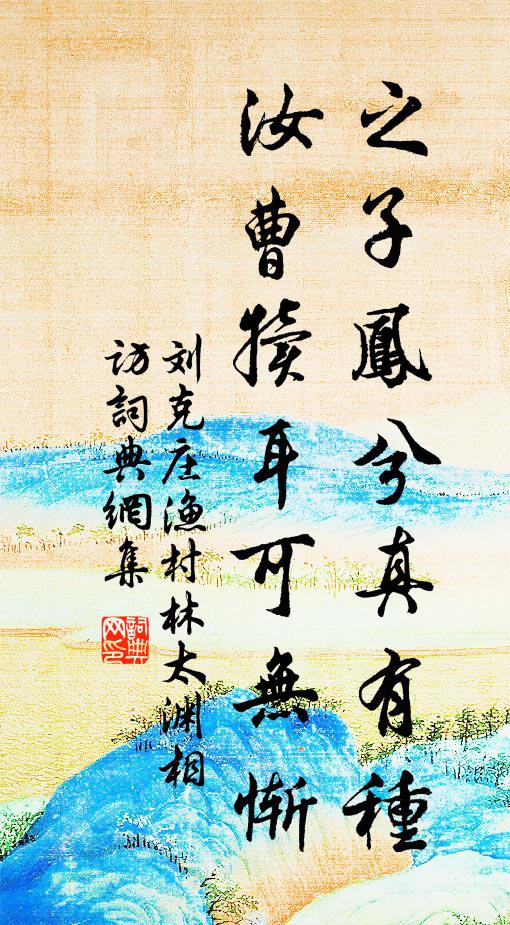 之子鳳兮真有種
汝曹犢耳可無慚
刘克庄漁村林太渊相
訪詞典網集
詞典网印